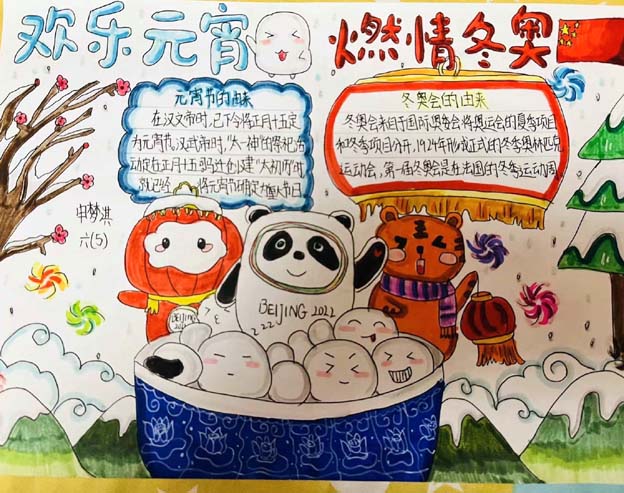 欢乐元宵
燃情冬奥
元宵节的由来
在汉文帝时,已下令将正月十五定
为元宵节,汉武帝时,"太一神"的祭祀活
动定在正月十五
就已经将元宵节确定为重大节日
冬奥会的由来
冬奥会来自于国际奥委会将奥运会的夏季项目
和冬季项目分开,1924年形成正式的冬季奥林匹克
运动会,第一届冬奥会是在法国的冬季运动周。
申梦淇
六(5)
BEIJING
202
BEIJING 2022
222